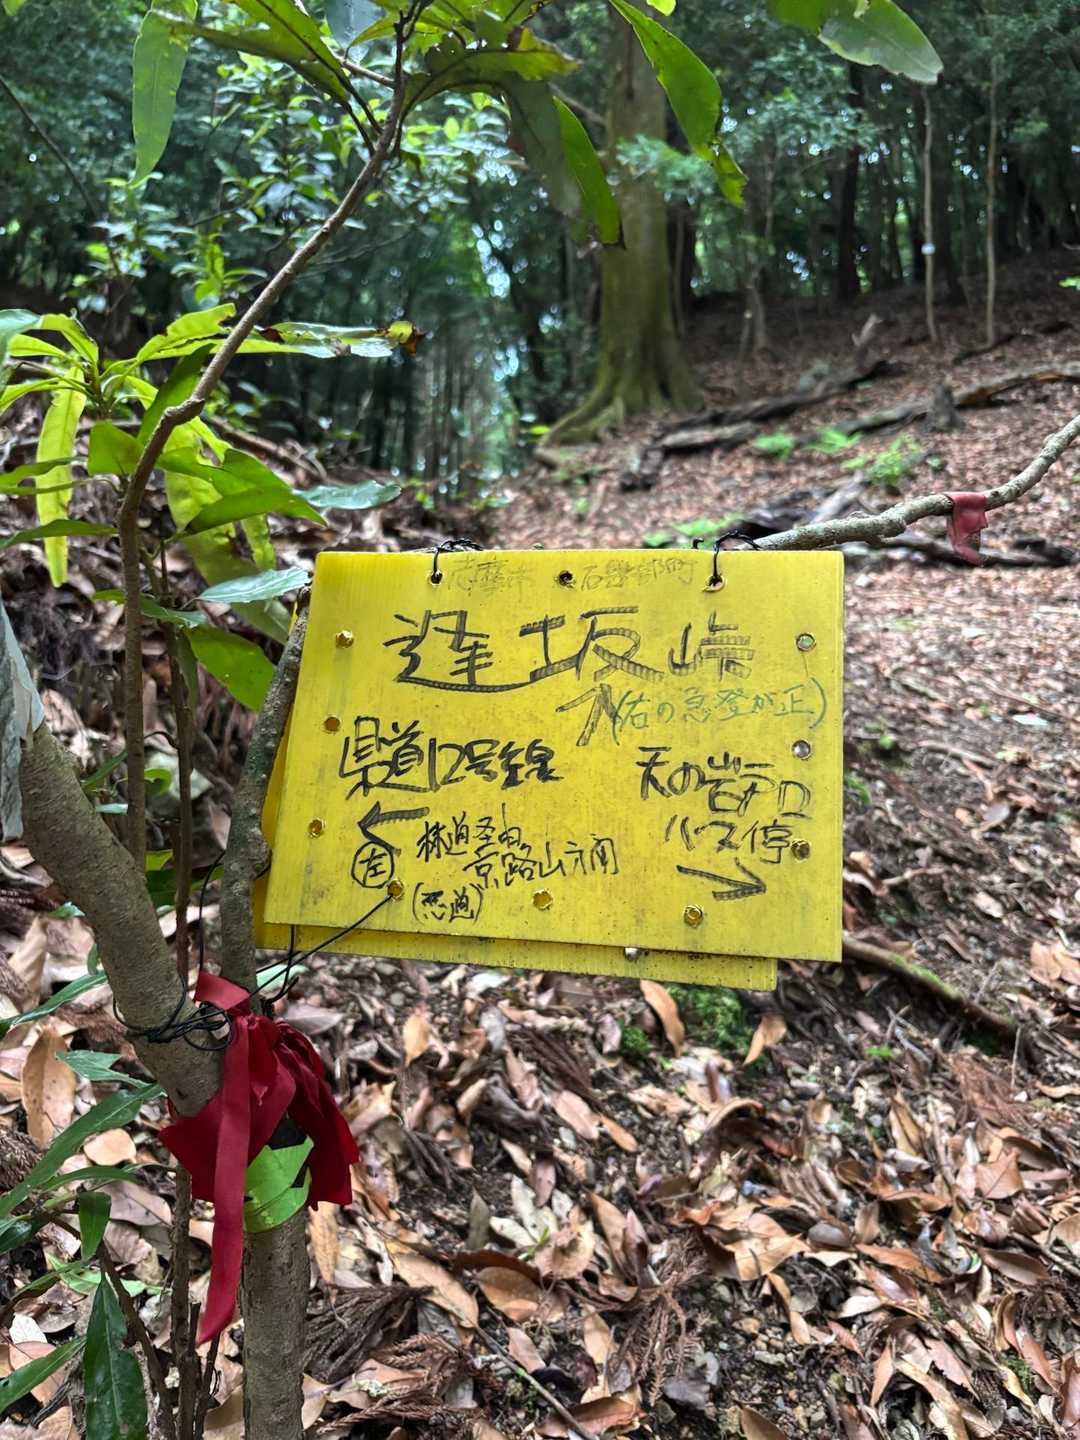 志摩市 石磯部町
逢坂峠
(右の急登が正)
県道12号線
天の岩戸口
バス停
左
林道圣由
京路山方面
(悪道)